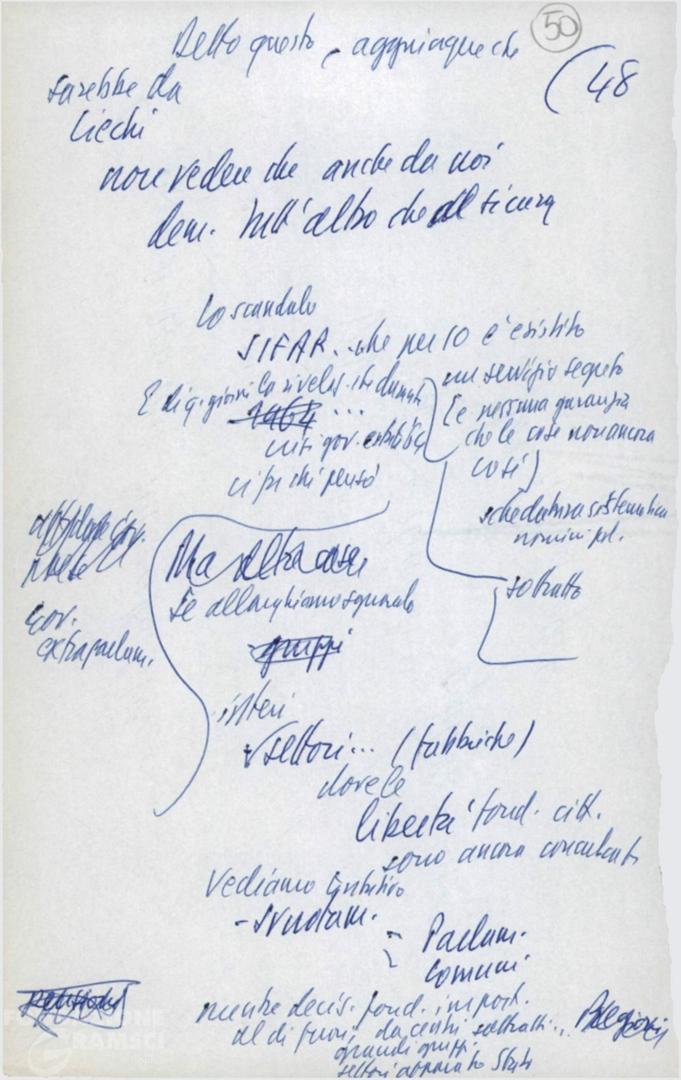 50
Detto questo, aggiungiamo che
(48
sarebbe da
ciechi
non vedere che anche da noi
dem. tutt'altro che al sicuro
Lo scandalo
SIFAR.. che per 10 è esistito
un servizio segreto
(e nessuna garanzia
che le cose non ancora
così)
schedatura sistematica
uomini pol.
sottratto
E di q. giorni la rivelaz. che durante
1964 ...
crisi gov.
ci fu chi pensò
gov.
extraparlam.
Ma altra cosa
se allarghiamo sguardo
gruppi
interi
settori... (fabbriche)
dove le
libertà fond. citt.
sono ancora conculcate
Vediamo tentativo
- svuotam.
- Parlam.
- Comuni
mentre decis. fond. import.
al di fuori, da centri sottratti..
grandi gruppi
settori apparato Stato
FONDAZIONE
GRAMSCI